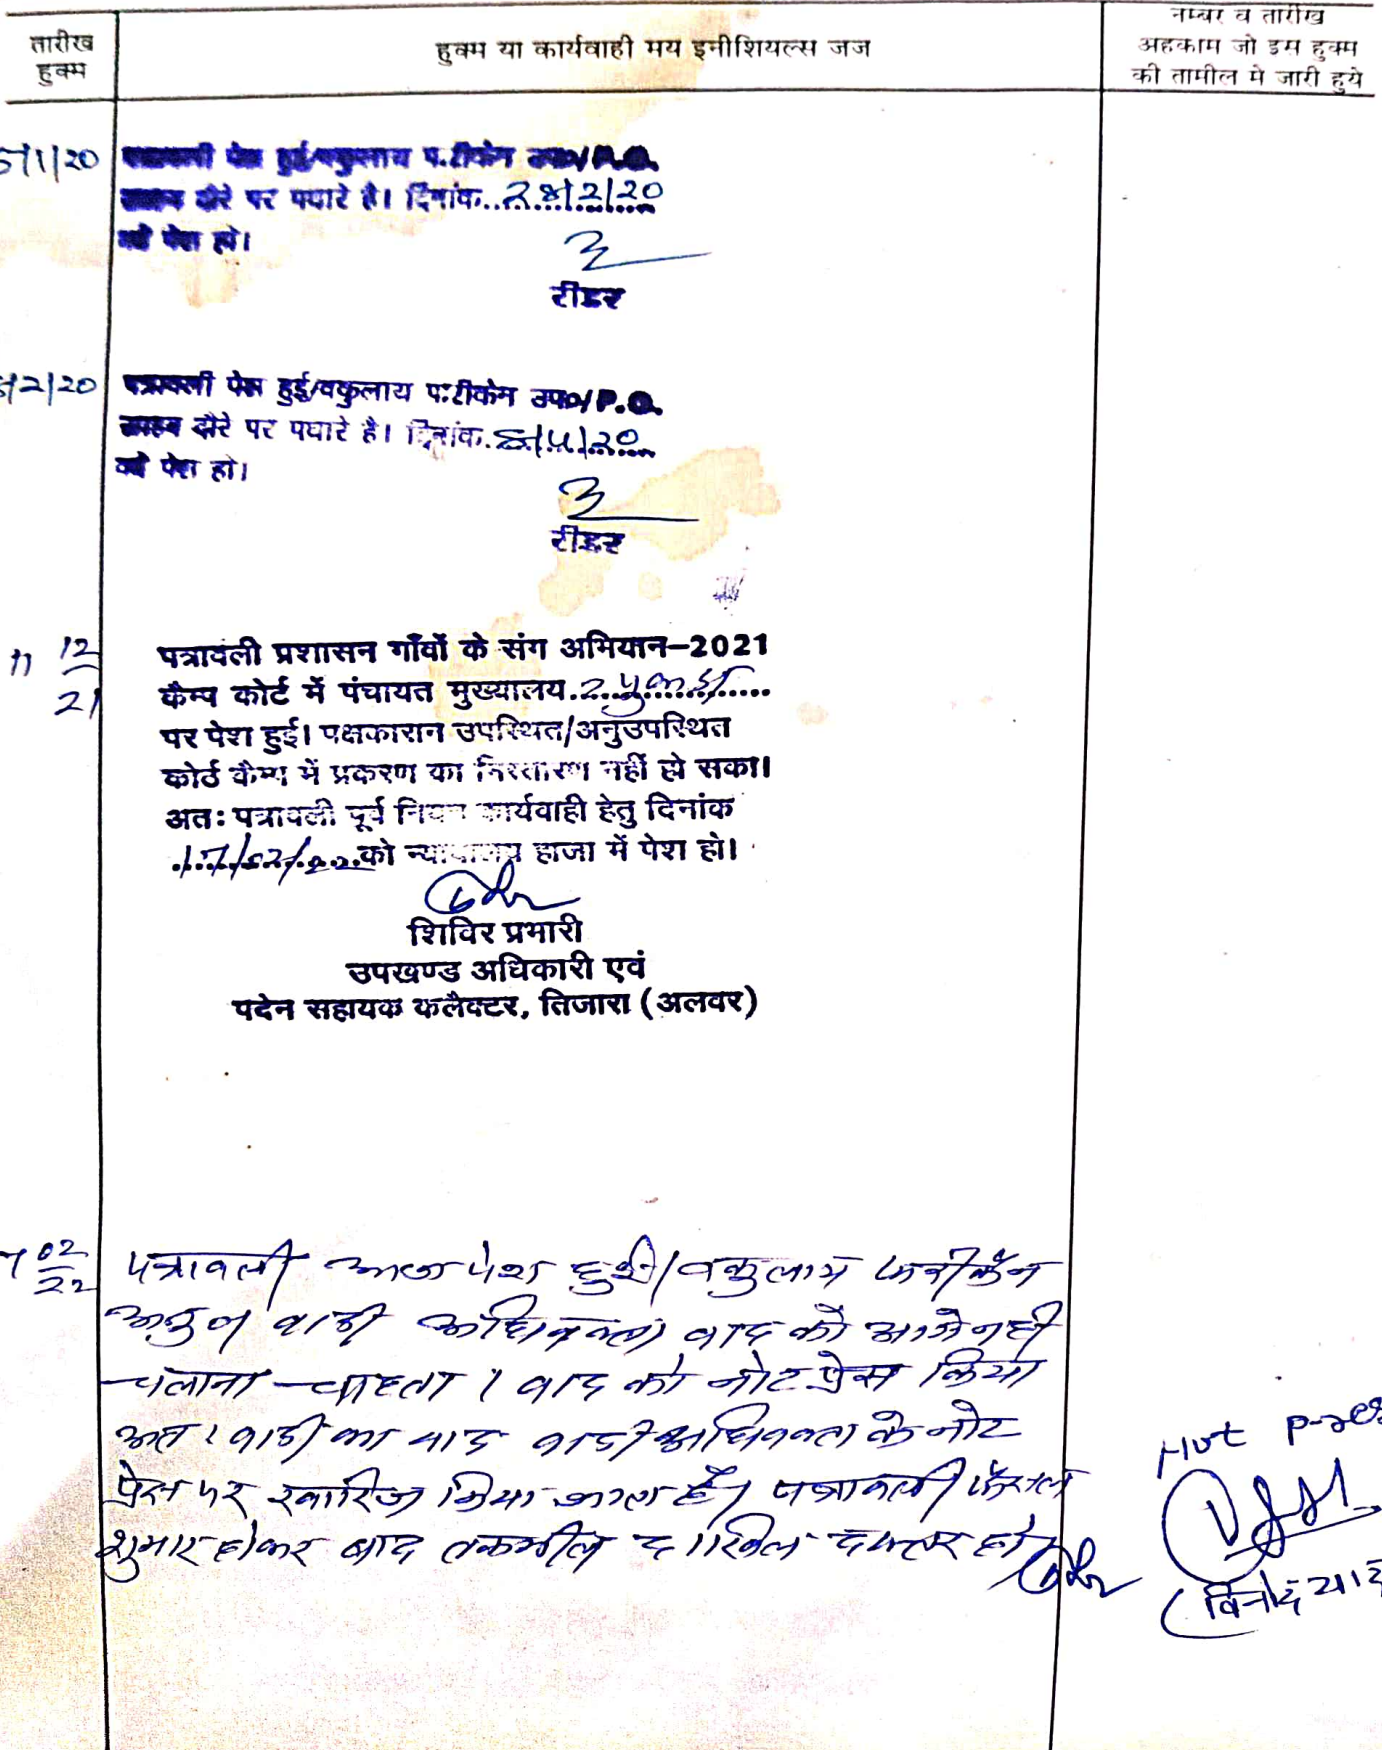 तारीख
हुक्म
हुक्म या कार्यवाही मय इनीशियल्स जज
नम्बर व तारीख
अहकाम जो इस हुक्म
की तामील मे जारी हुये
5/1/20 पत्रावली पेश हुई/वकुलाय प.रीकेन उप०/P.O.
साहब दौरे पर पधारे है। दिनांक..28/2/20
को पेश हो।
रीडर
/2/20 पत्रावली पेश हुई/वकुलाय प.रीकेन उप०/P.O.
साहब दौरे पर पधारे है। दिनांक.8/4/20
को पेश हो।
रीडर
11 12
21
पत्रावली प्रशासन गाँवों के संग अभियान–2021
कैम्प कोर्ट में पंचायत मुख्यालय
पर पेश हुई। पक्षकारान उपस्थित/अनुउपस्थित
कोर्ट कैम्प में प्रकरण का निस्तारण नहीं हो सका।
अतः पत्रावली पूर्व नियत कार्यवाही हेतु दिनांक
17/02/22 को न्यायालय हाजा में पेश हो।
शिविर प्रभारी
उपखण्ड अधिकारी एवं
पदेन सहायक कलैक्टर, तिजारा (अलवर)
7 02
22
पत्रावली आज पेश हुई/वकुलाय फरीकैन
वादी अधिवक्ता वाद को आगे नही
चलाना चाहता। वाद को नोट प्रेस किया
अतः वादी का वाद वादी अधिवक्ता के नोट
प्रेस पर खारिज किया जाता है। पत्रावली फैसल
शुमार होकर बाद तकमील दाखिल दफ्तर हो
Not press
(विनोद याद